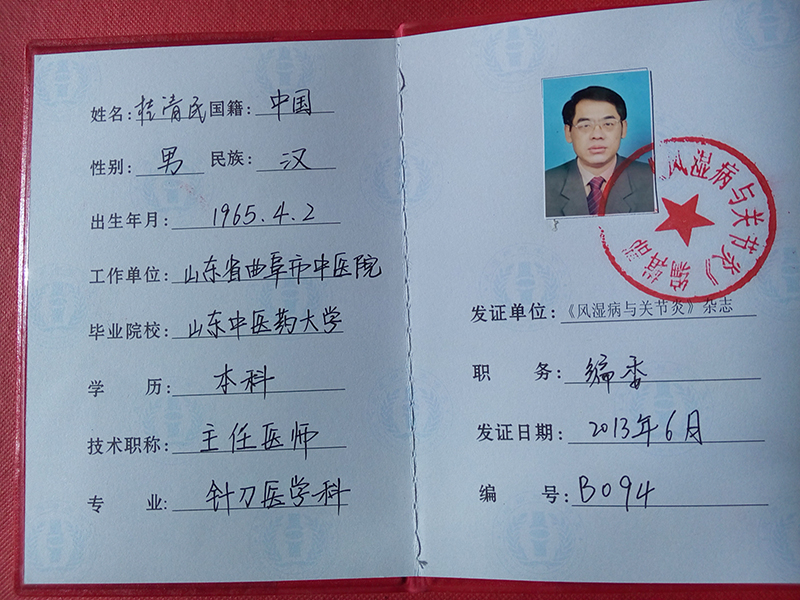 姓名:桂清民 国籍:中国
性别:男 民族:汉
出生年月:1965.4.2
工作单位:山东省曲阜市中医院
毕业院校:山东中医药大学
学 历:本科
技术职称:主任医师
专 业:针刀医学科
风湿病与关节炎》编辑部
发证单位:《风湿病与关节炎》杂志
职 务:编委
发证日期:2013年6月
编 号:B094